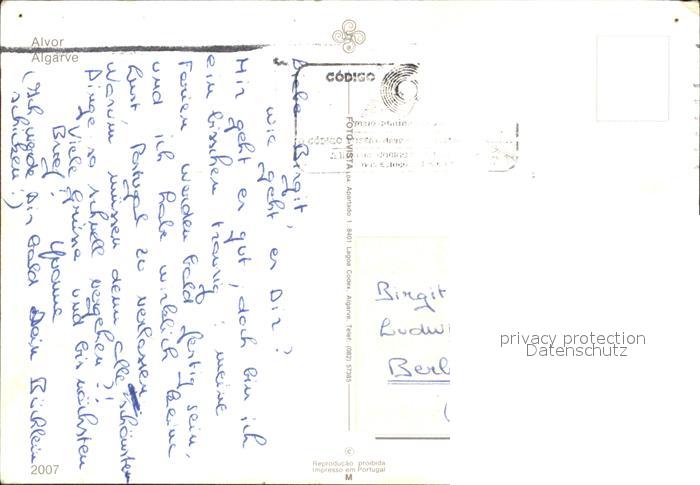 Alvor
Algarve
Liebe Birgit,
wie geht es Dir?
Mir geht es gut, doch bin ich
ein bisschen traurig: meine
Ferien werden bald fertig sein,
und ich habe wirklich keine
Lust, Portugal zu verlassen
Warum müssen denn alle schönsten
Dinge so schnell vergehen?!
Viele Grüsse und bis nächsten
Brief! Yvonne
(Ich werde Dir bald Dein Büchlein
schicken!)
2007
CÓDIGO
CÓDIGO
FOTO-VISTA LDA Apartado 1 8401 Lagoa Codex, Algarve, Telef. (082) 57385
©
Reprodução proibida
Impresso em Portugal
M
Birgit
Ludwi
Berl
privacy protection
Datenschutz